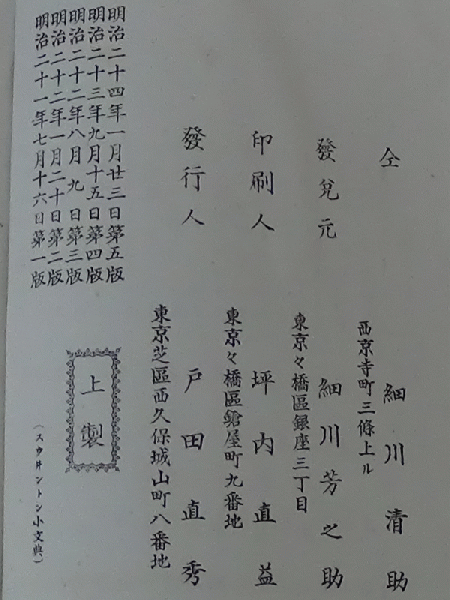 明治二十一年七月十六日第一版
明治二十二年一月二十日第二版
明治二十二年八月九日第三版
明治二十三年九月十五日第四版
明治二十四年一月廿三日第五版
(スウ井ントン小文典)
上製
東京芝區西久保城山町八番地
發行人 戸田直秀
東京々橋區鎗屋町九番地
印刷人 坪内直益
東京々橋區銀座三丁目
發兌元 細川芳之助
西京寺町三條上ル
仝 細川清助